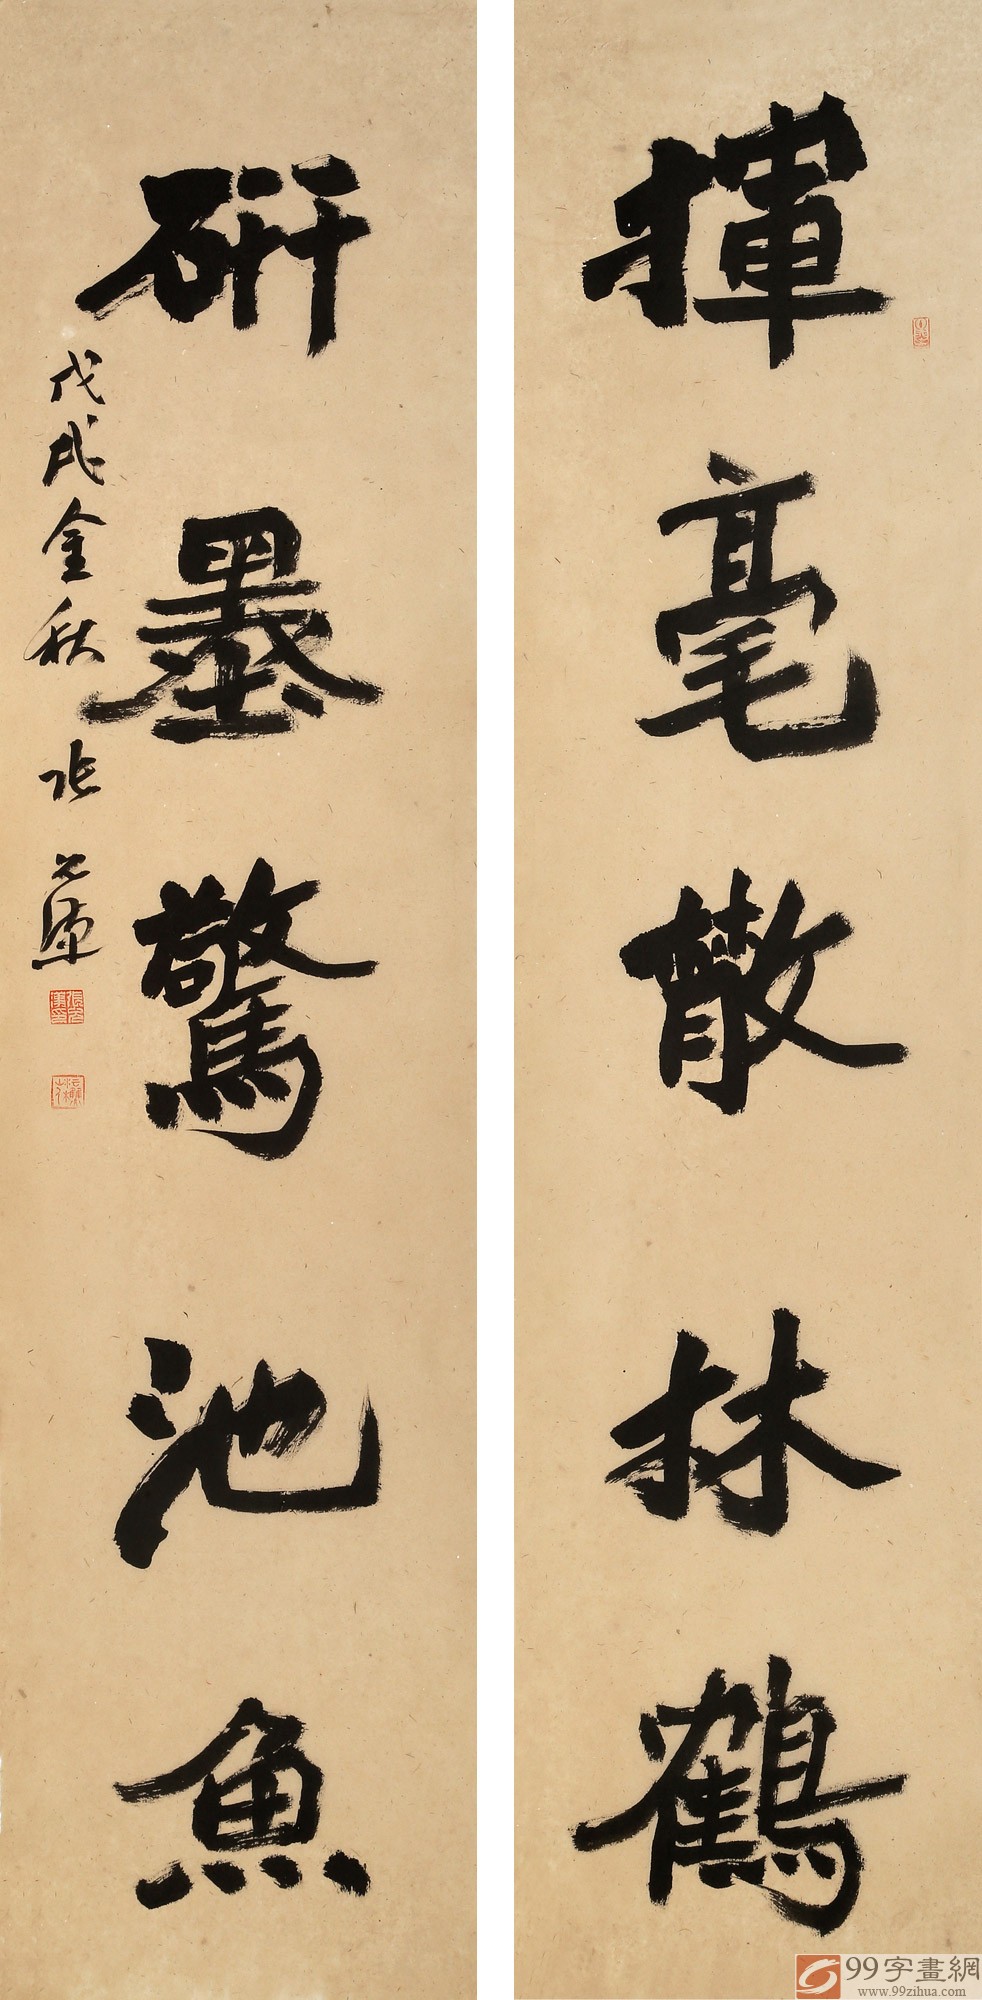 揮毫散林鶴
研墨驚池魚
戊戌金秋 张
99字畫網
www.99zihua.com